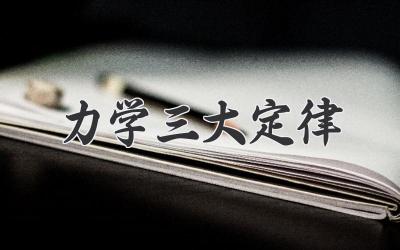 力学三大定律